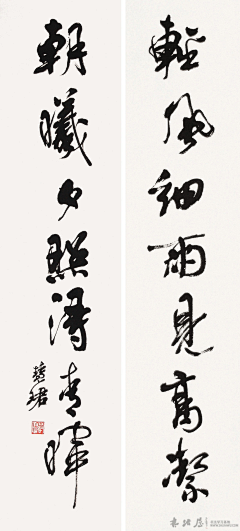 輕風細雨見高潔
朝曦夕照得清暉